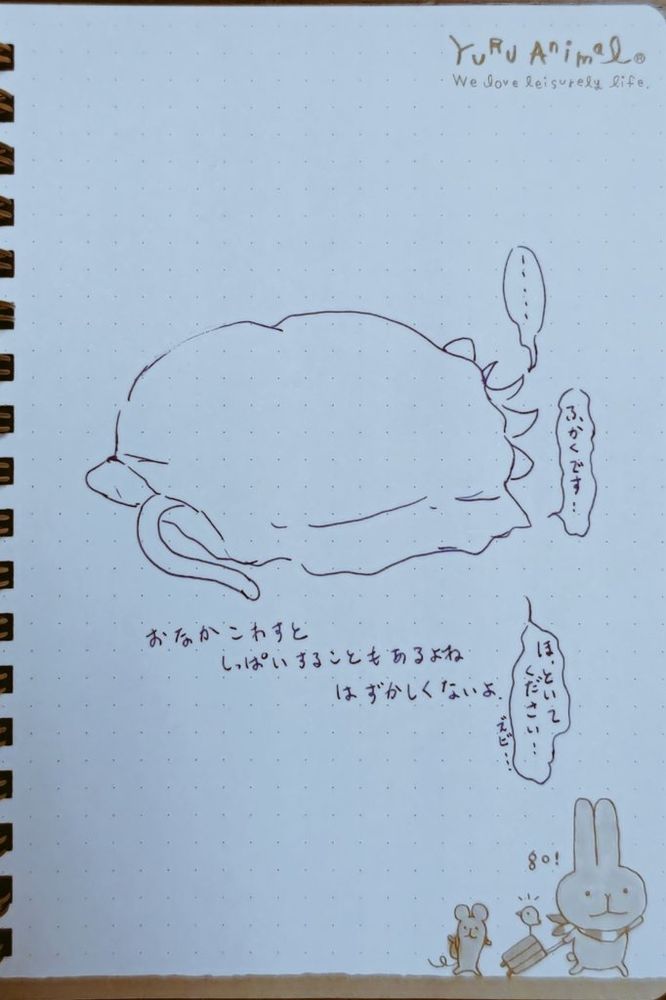 YURU Animal®
We love leisurely life.
......
ふかくです…
おなかこわすと
しっぱいすることもあるよね
はずかしくないよ
ほっといて
ください…
go!